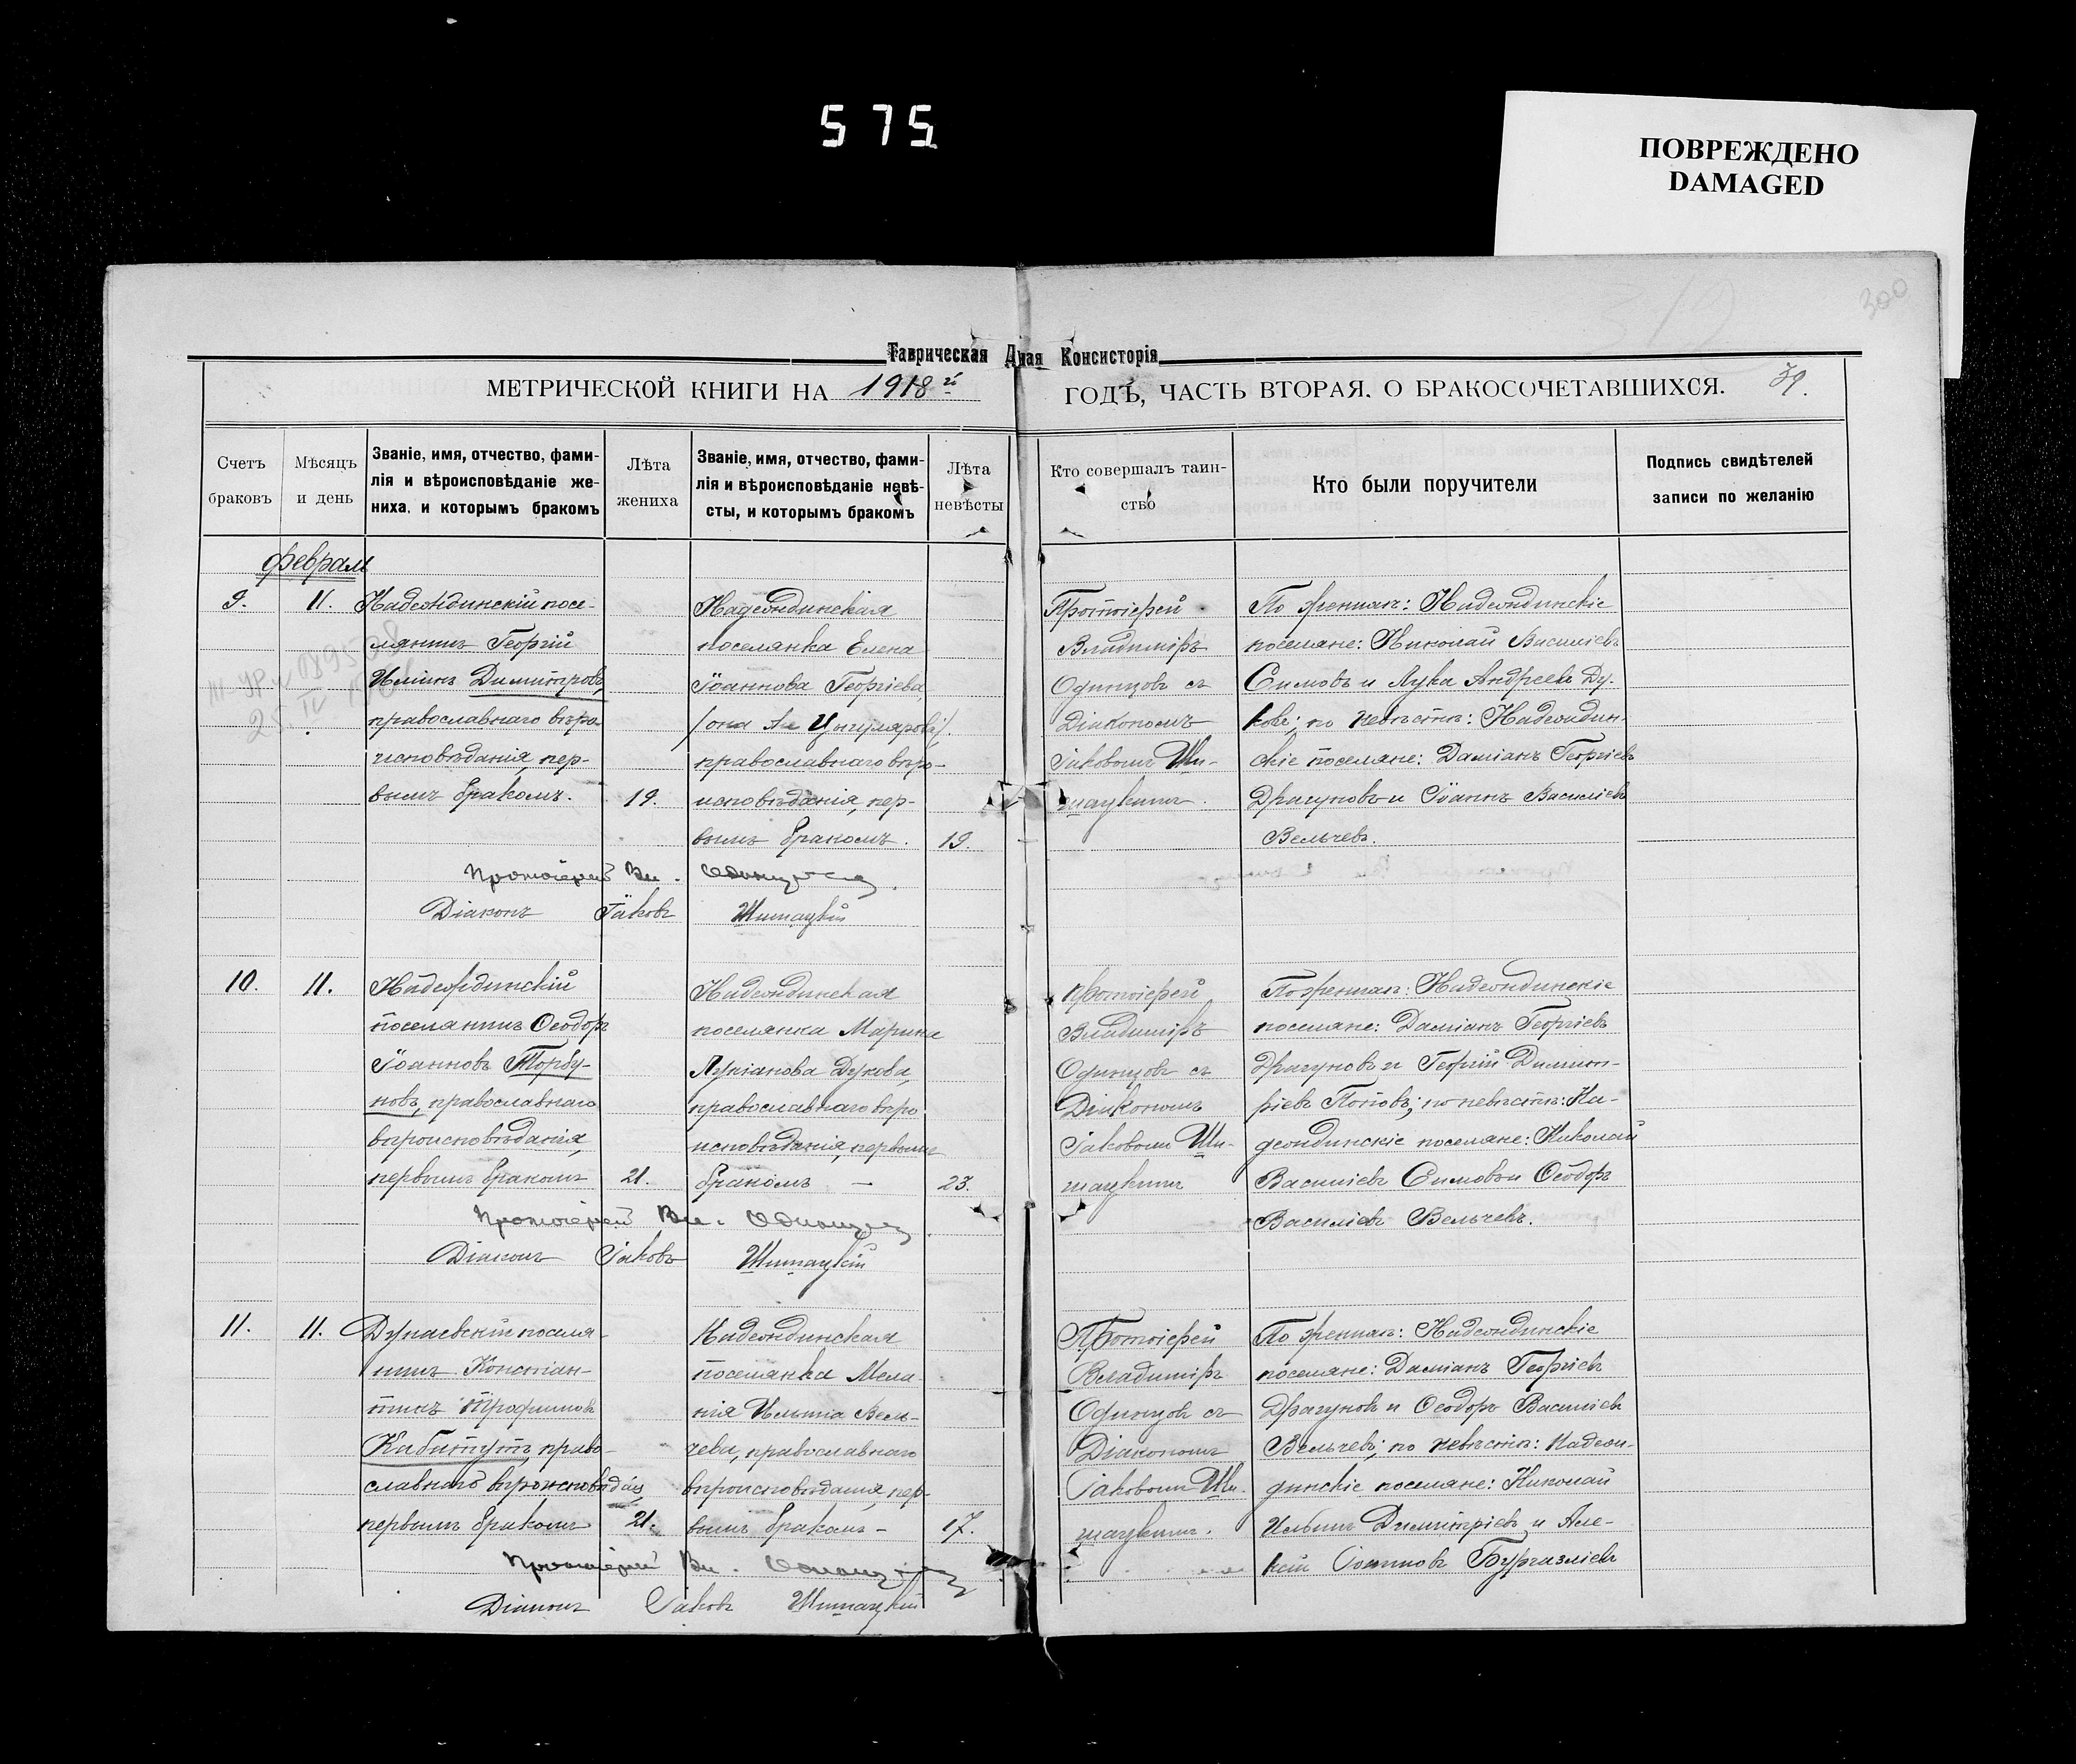 575
ПОВРЕЖДЕНО
DAMAGED
300
Таврическая Д ная Консисторія
МЕТРИЧЕСКОЙ КНИГИ НА 1918й ГОДЪ, ЧАСТЬ ВТОРАЯ, О БРАКОСОЧЕТАВШИХСЯ. 59.
Счетъ
браковъ
Мѣсяцъ
и день
Званіе, имя, отчество, фами-
лія и вѣроисповѣданіе же-
ниха, и которымъ бракомъ
Лѣта
жениха
Званіе, имя, отчество, фами-
лія и вѣроисповѣданіе невѣ-
сты, и которымъ бракомъ
Лѣта
невѣсты
Кто совершалъ таин-
ство
Кто были поручители
Подпись свидѣтелей
записи по желанію
Февраль
9.
11.
поселянинъ Георгій
Ильинъ Димитровъ,
православнаго вѣро
исповѣданія, пер-
вымъ бракомъ.
19.
поселянка Елена
Іоаннова Георгіева,
православнаго вѣро-
исповѣданія, пер-
вымъ бракомъ.
19.
Протоіерей
Владиміръ
Одинцовъ съ
Діакономъ
Іаковомъ Ши-
мацкимъ.
поселяне: Николай Василіевъ
Симовъ и Лука Андреевъ Ду-
ковъ; по невѣстѣ:
скіе поселяне: Даміанъ Георгіевъ
Драгуновъ и Іоаннъ Василіевъ
Вельчевъ.
Протоіерей Вл. Одинцовъ.
Діаконъ Іаковъ Шимацкій
10.
11.
поселянинъ Ѳеодоръ
Іоанновъ Торбу-
новъ, православнаго
вѣроисповѣданія,
первымъ бракомъ
21.
поселянка Марина
Лукіанова Дукова,
православнаго вѣро
исповѣданія, первымъ
бракомъ —
23.
Протоіерей
Владиміръ
Одинцовъ съ
Діакономъ
Іаковомъ Ши-
мацкимъ
поселяне: Даміанъ Георгіевъ
Драгуновъ и Георгій Димит-
ріевъ Поповъ; по невѣстѣ: На-
поселяне: Николай
Василіевъ Симовъ и Ѳеодоръ
Василіевъ Вельчевъ.
Протоіерей Вл. Одинцовъ
Діаконъ Іаковъ Шимацкій
11.
11.
Дунаевскій поселя-
нинъ Констан-
тинъ Трофимовъ
право-
славнаго вѣроисповѣдан.,
первымъ бракомъ
21.
поселянка Мела-
нія Ильина Вель-
чева, православнаго
вѣроисповѣданія, пер-
вымъ бракомъ —
17.
Протоіерей
Владиміръ
Одинцовъ съ
Діакономъ
Іаковомъ Ши-
мацкимъ.
поселяне: Даміанъ Георгіевъ
Драгуновъ и Ѳеодоръ Василіевъ
Вельчевъ; по невѣстѣ:
поселяне: Николай
Ильинъ Димитріевъ и Але-
ксій Іоанновъ
Протоіерей Вл. Одинцовъ
Діаконъ Іаковъ Шимацкій